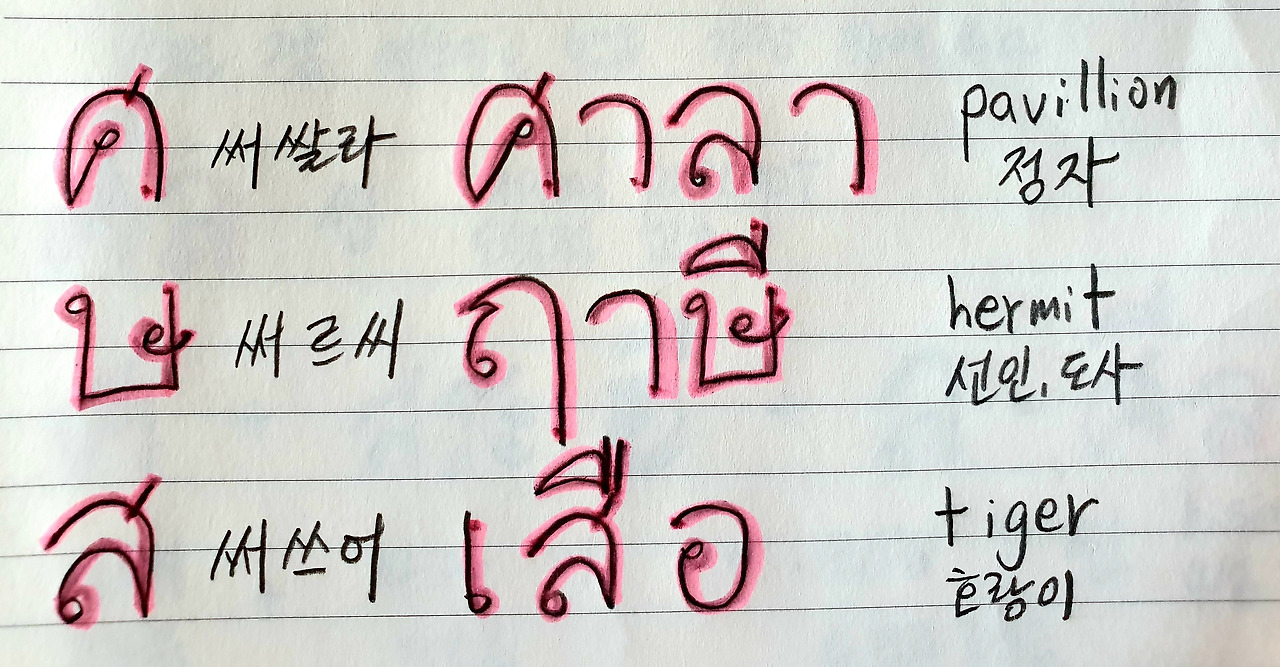 ศ 써쌀라 ศาลา pavillion
정자
ษ 써르씨 ฤาษี hermit
선인, 도사
ส 써쓰어 เสือ tiger
호랑이